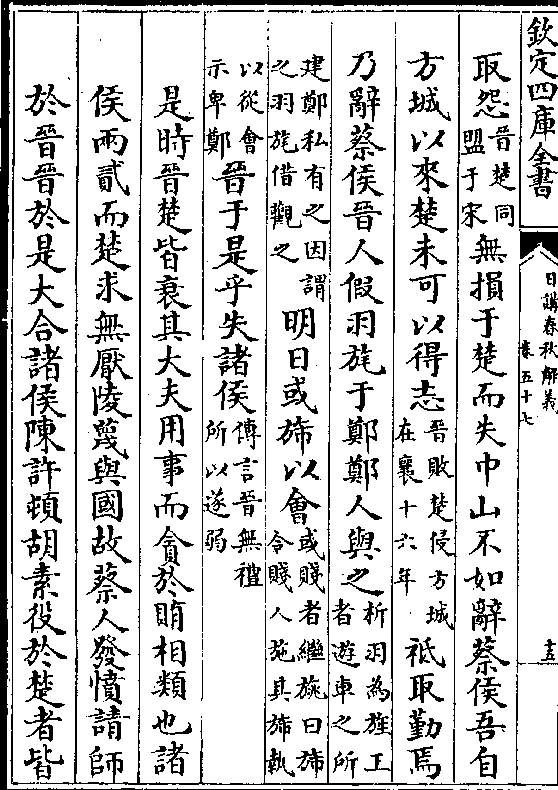 欽定四庫全書
日講春秋解義
卷五十七
十五
取怨晉楚同盟于宋無損于楚而失中山不如辭蔡侯吾自
方城以來楚未可以得志晉敗楚侵方城在襄十六年祗取勤焉
乃辭蔡侯晉人假羽旄于鄭鄭人與之析羽為旌王者遊車之所
建鄭私有之因謂之羽旄借觀之明日或斾以會或賤者繼旐曰斾令賤人施其斾執
以從會示卑鄭晉于是乎失諸侯傳言晉無禮所以遂弱
是時晉楚皆衰其大夫用事而貪於賄相類也諸
侯兩貳而楚求無厭陵蔑與國故蔡人發憤請師
於晉晉於是大合諸侯陳許頓胡素役於楚者皆